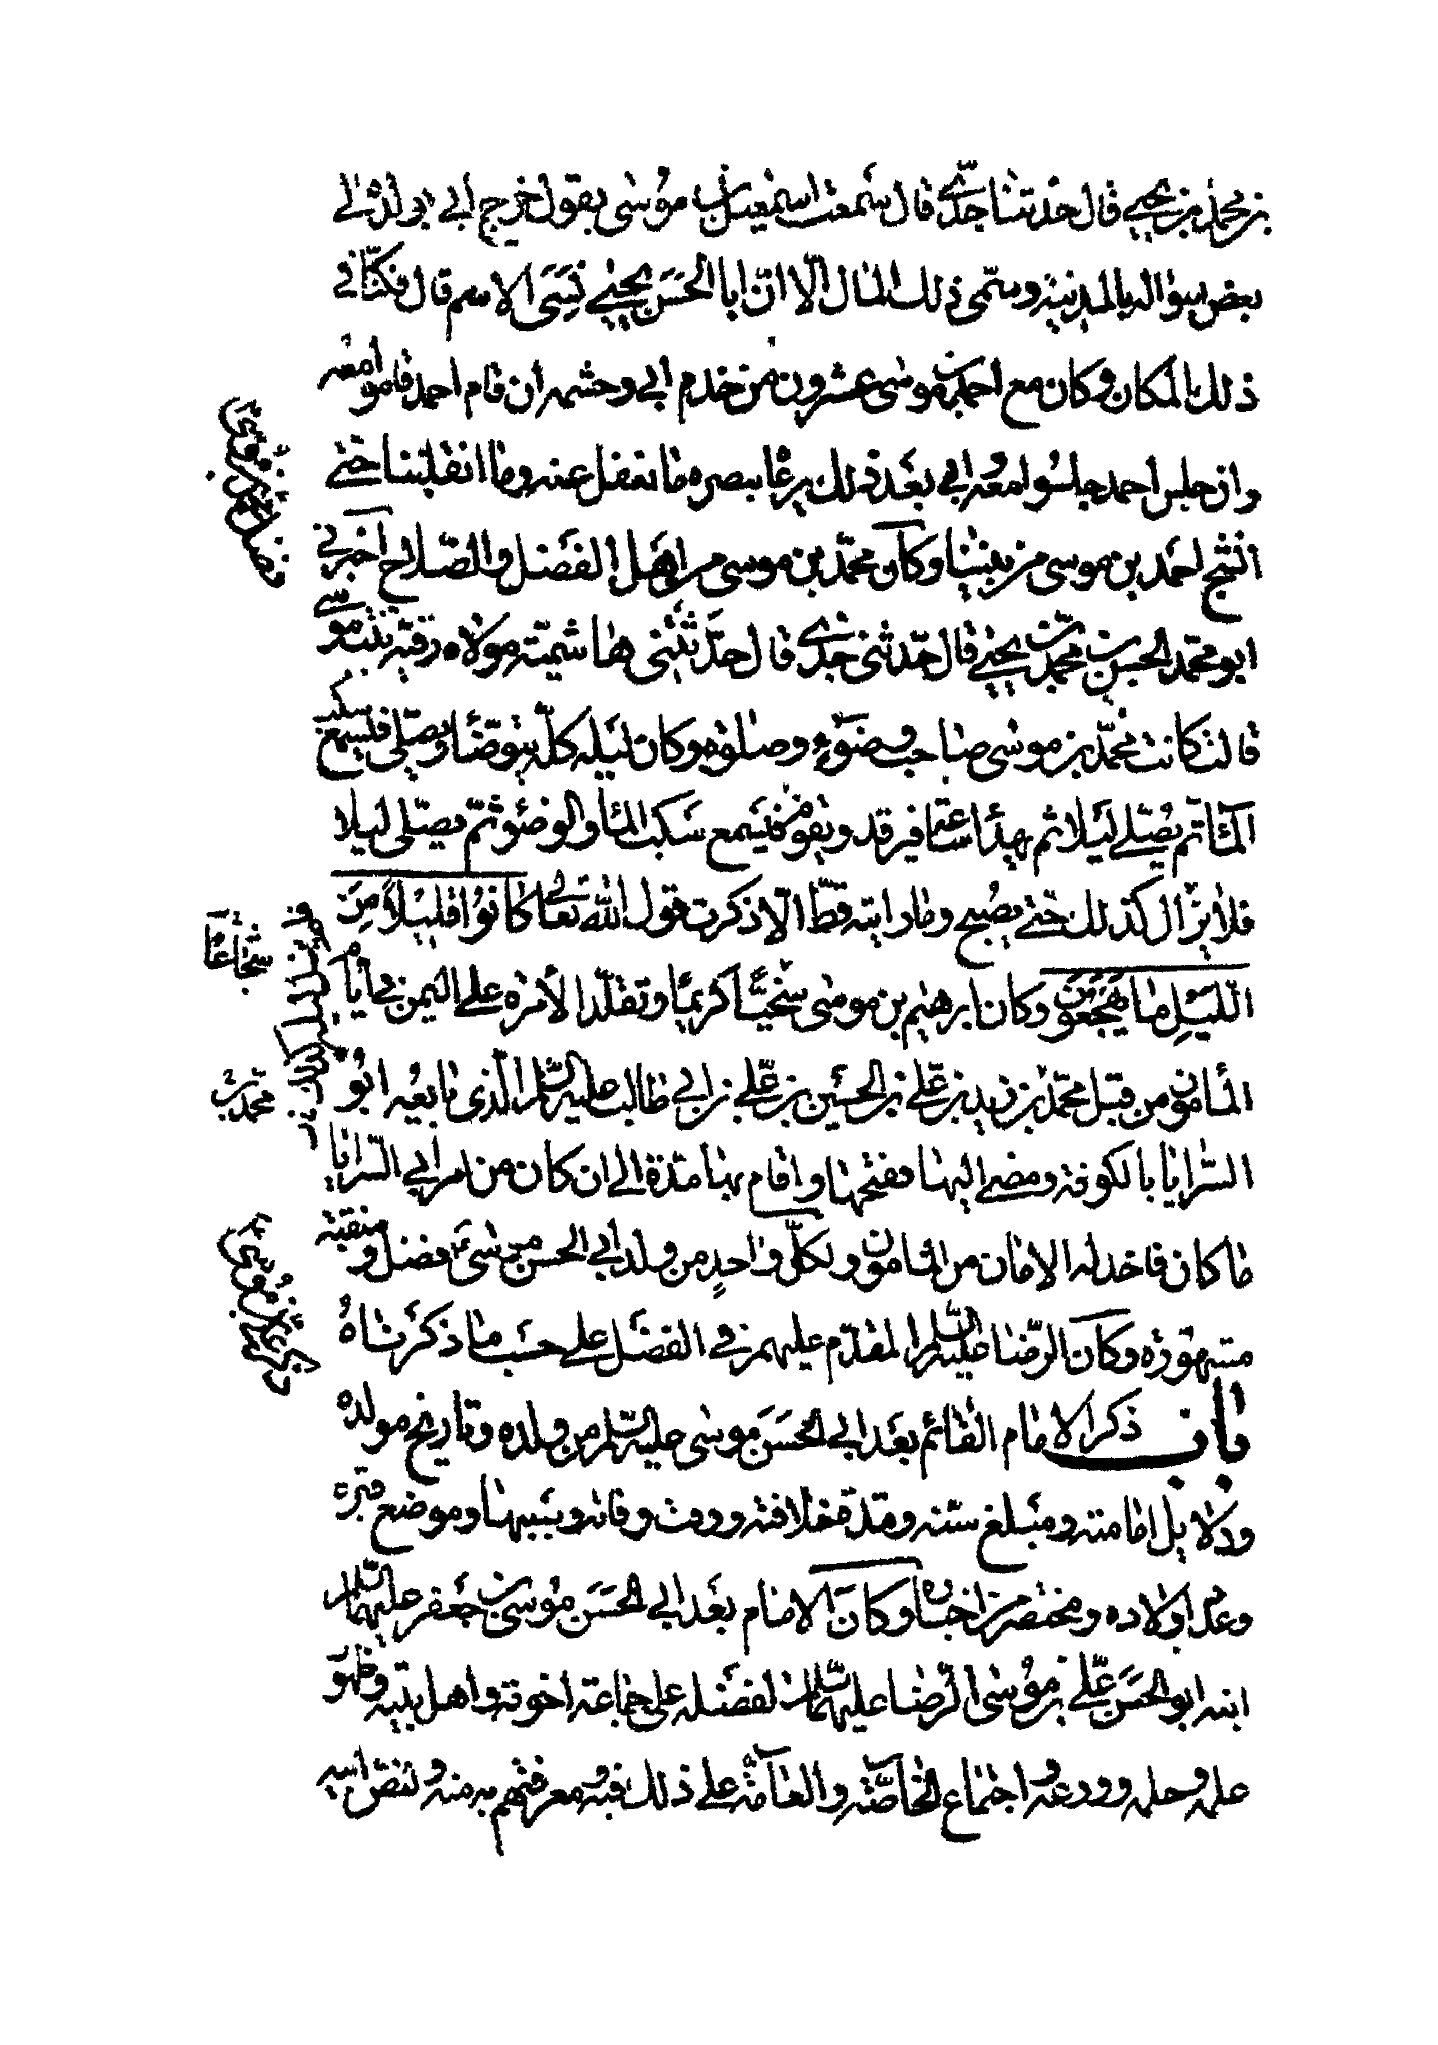 بن محمد بن يحيى قال حدثنا جدّى قال سمعت اسمعيل بن موسى يقول خرج ابى بولده الى
بعض امواله بالمدينة وسمى ذلك المال الّا انّ ابا الحسن يحيى نسى الاسم قال فكنّا فى
ذلك المكان وكان مع احمد بن موسى عشرون من خدم ابى وحشمه ان قام احمد قاموا معه
وان جلس احمد جلسوا معه وابى بعد ذلك يرعاه ببصره ما يغفل عنه وما انقلبنا حتى
انشج احمد بن موسى من بيننا وكان محمّد بن موسى من اهل الفضل والصّلاح اخبرنى
ابو محمّد الحسن بن محمّد بن يحيى قال حدّثنى جدّى قال حدّثتنى هاشميّة مولاه رقيّة بنت موسى
قالت كانت محمّد بن موسى صاحب وضوء وصلوة وكان ليله كلّه يتوضأ ويصلّى فيسمع سكب
المآء ثم يصلّى ليلا ثم يهدأ ساعة فيرقد ويقوم فيسمع سكب المآء والوضوء ثمّ يصلّى ليلا
فلا يزال كذلك حتى يصبح وما رايته قطّ الّا ذكرت قول الله تعالى كانوا قليلاً من
اللّيل ما يهجعون وكان ابرهيم بن موسى سخيّاً كريماً وتقلّد الأمره على اليمن فى ايام
المأمون من قبل محمّد بن زيد بن علىّ بن الحسين بن علىّ بن ابى طالب عليه السّلم الّذى بايعه ابو
السّرايا بالكوفة ومضى اليها ففتحها واقام بها مدّة الى ان كان من امر ابى السّرايا
ما كان فاخذ له الامان من المأمون ولكلّ واحدٍ من ولد ابى الحسن موسى ع فضل ومنقبة
مشهورة وكان الرّضا عليه السّلم المقدّم عليهم فى الفضل على حسب ما ذكرناهُ
باب ذكر الامام القائم بعد ابى الحسن موسى عليه السّلم من ولده وتاريخ مولده
ودلايل امامته ومبلغ سنّه ومدّة خلافته ووقت وفاته وسببها وموضع قبره
وعدد اولاده ومختصر من اخباره وكان الامام بعد ابى الحسن موسى بن جعفر عليهما السّلم
ابنه ابو الحسن علىّ بن موسى الرّضا عليهما السّلم لفضله على جماعة اخوته واهل بيته وظهور
علمه وحلمه وورعه واجتماع الخاصّة والعامّة على ذلك فيه ومعرفتهم به منه ولنصّ ابيه
فضل محمّد بن موسى
شجاعا
محمد بن